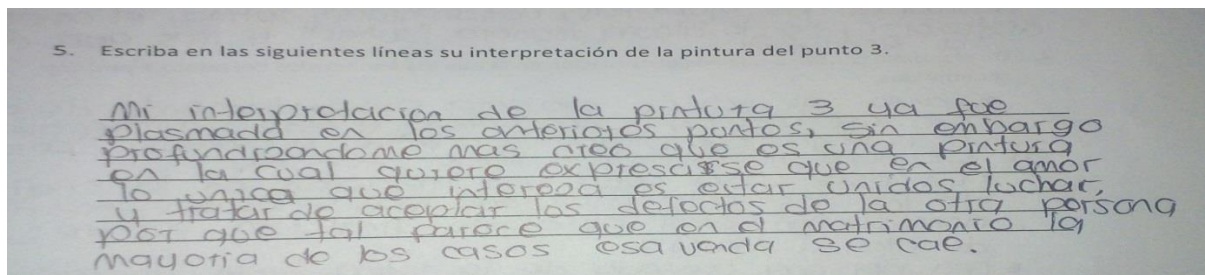 5. Escriba en las siguientes líneas su interpretación de la pintura del punto 3.
Mi interpretacion de la pintura 3 ya fue
plasmada en los anteriores puntos, sin embargo
profundizandome mas creo que es una pintura
en la cual quiere expresarse que en el amor
lo unico que interesa es estar unidos luchar,
y tratar de aceptar los defectos de la otra persona
por que tal parece que en el matrimonio la
mayoria de los casos esa venda se cae.